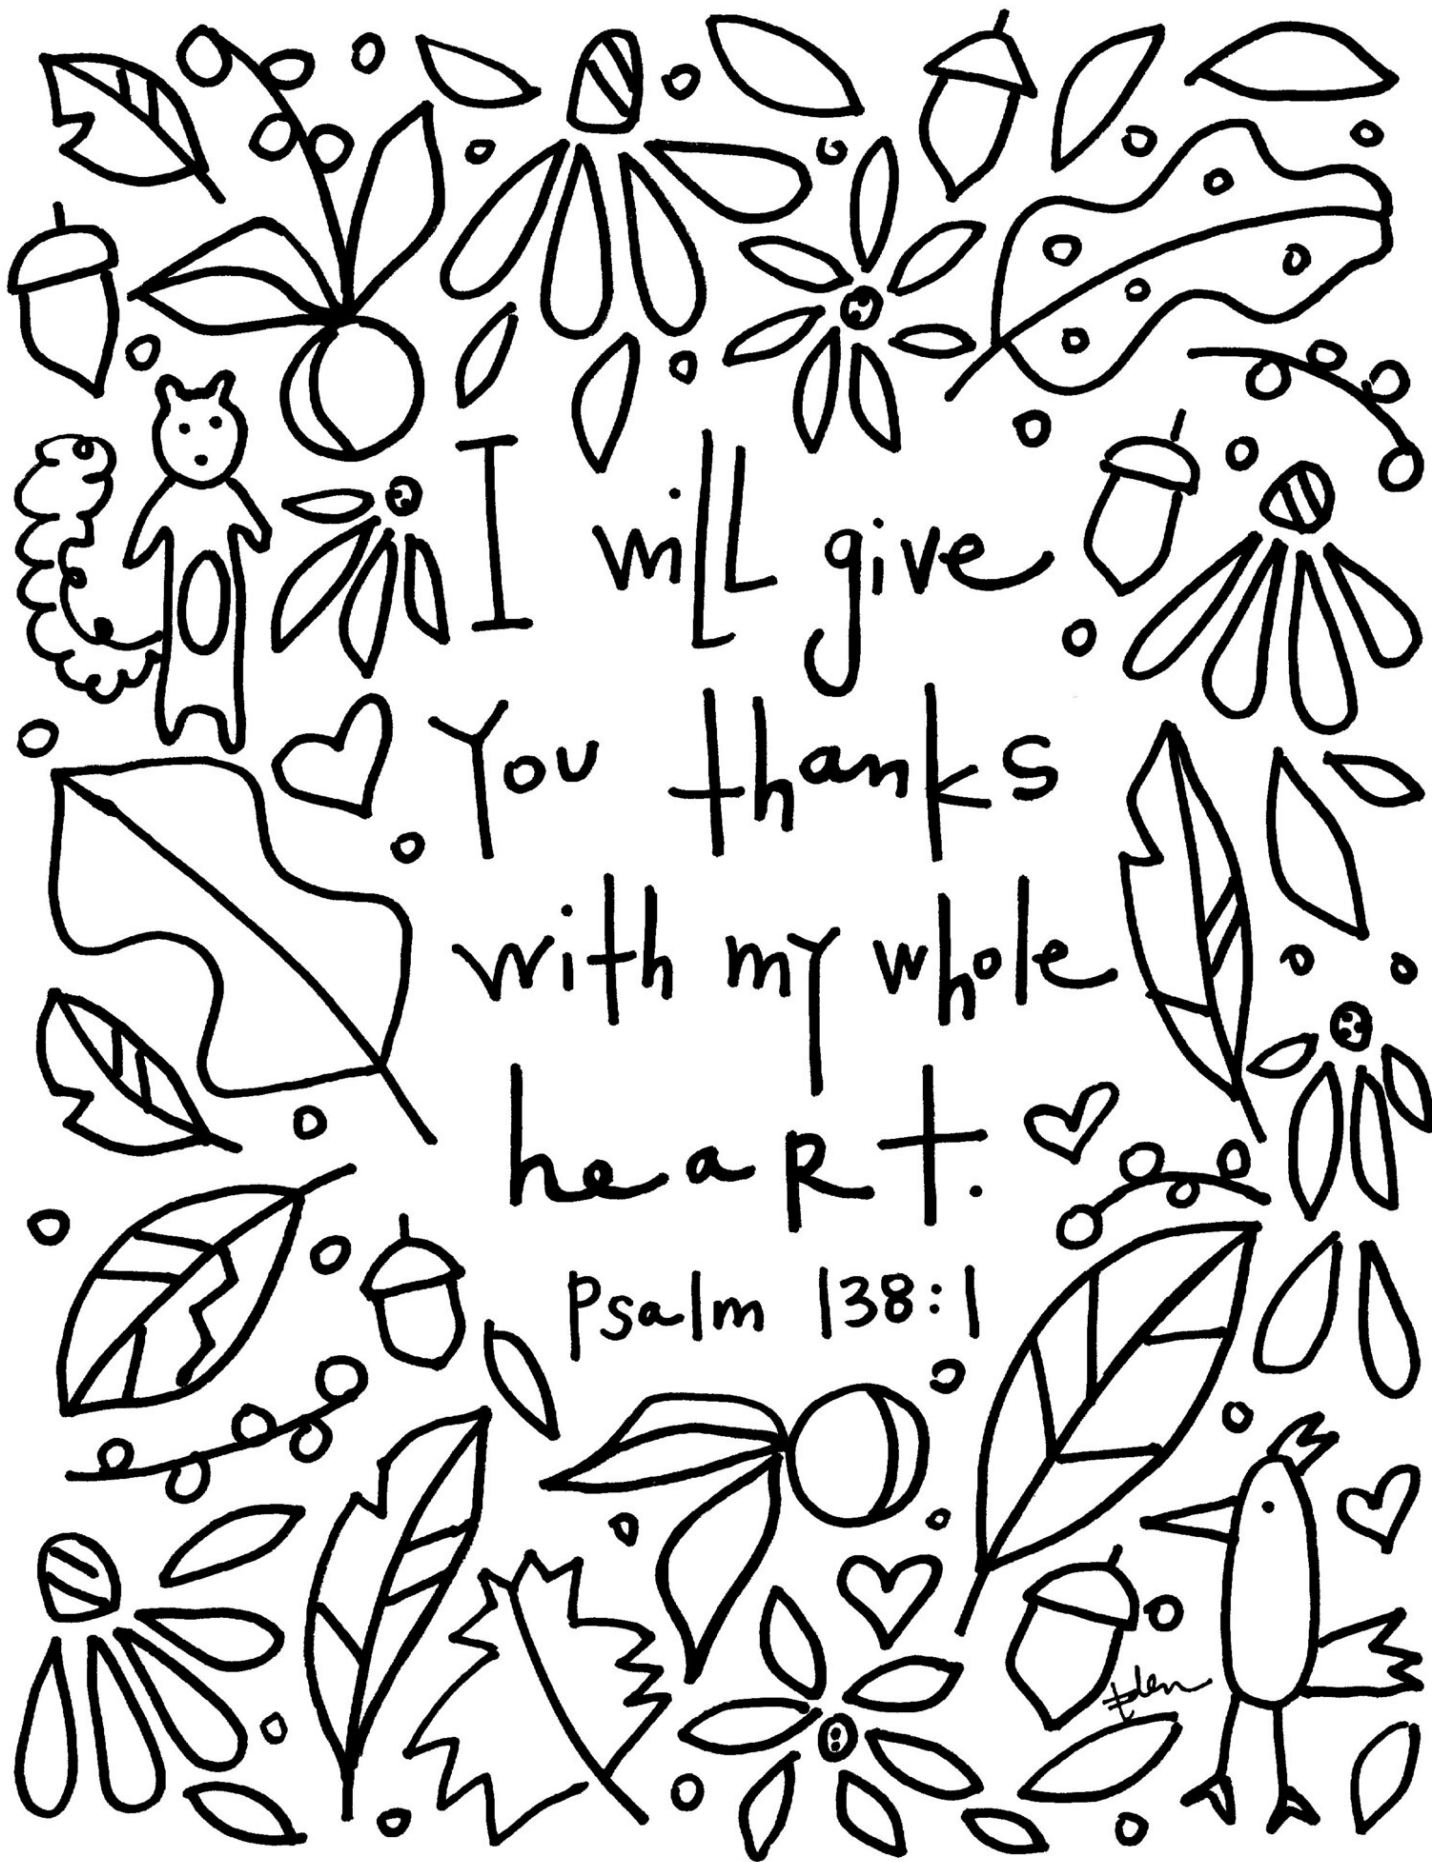 I will give
You thanks
with my whole
heart.
Psalm 138:1
Eden